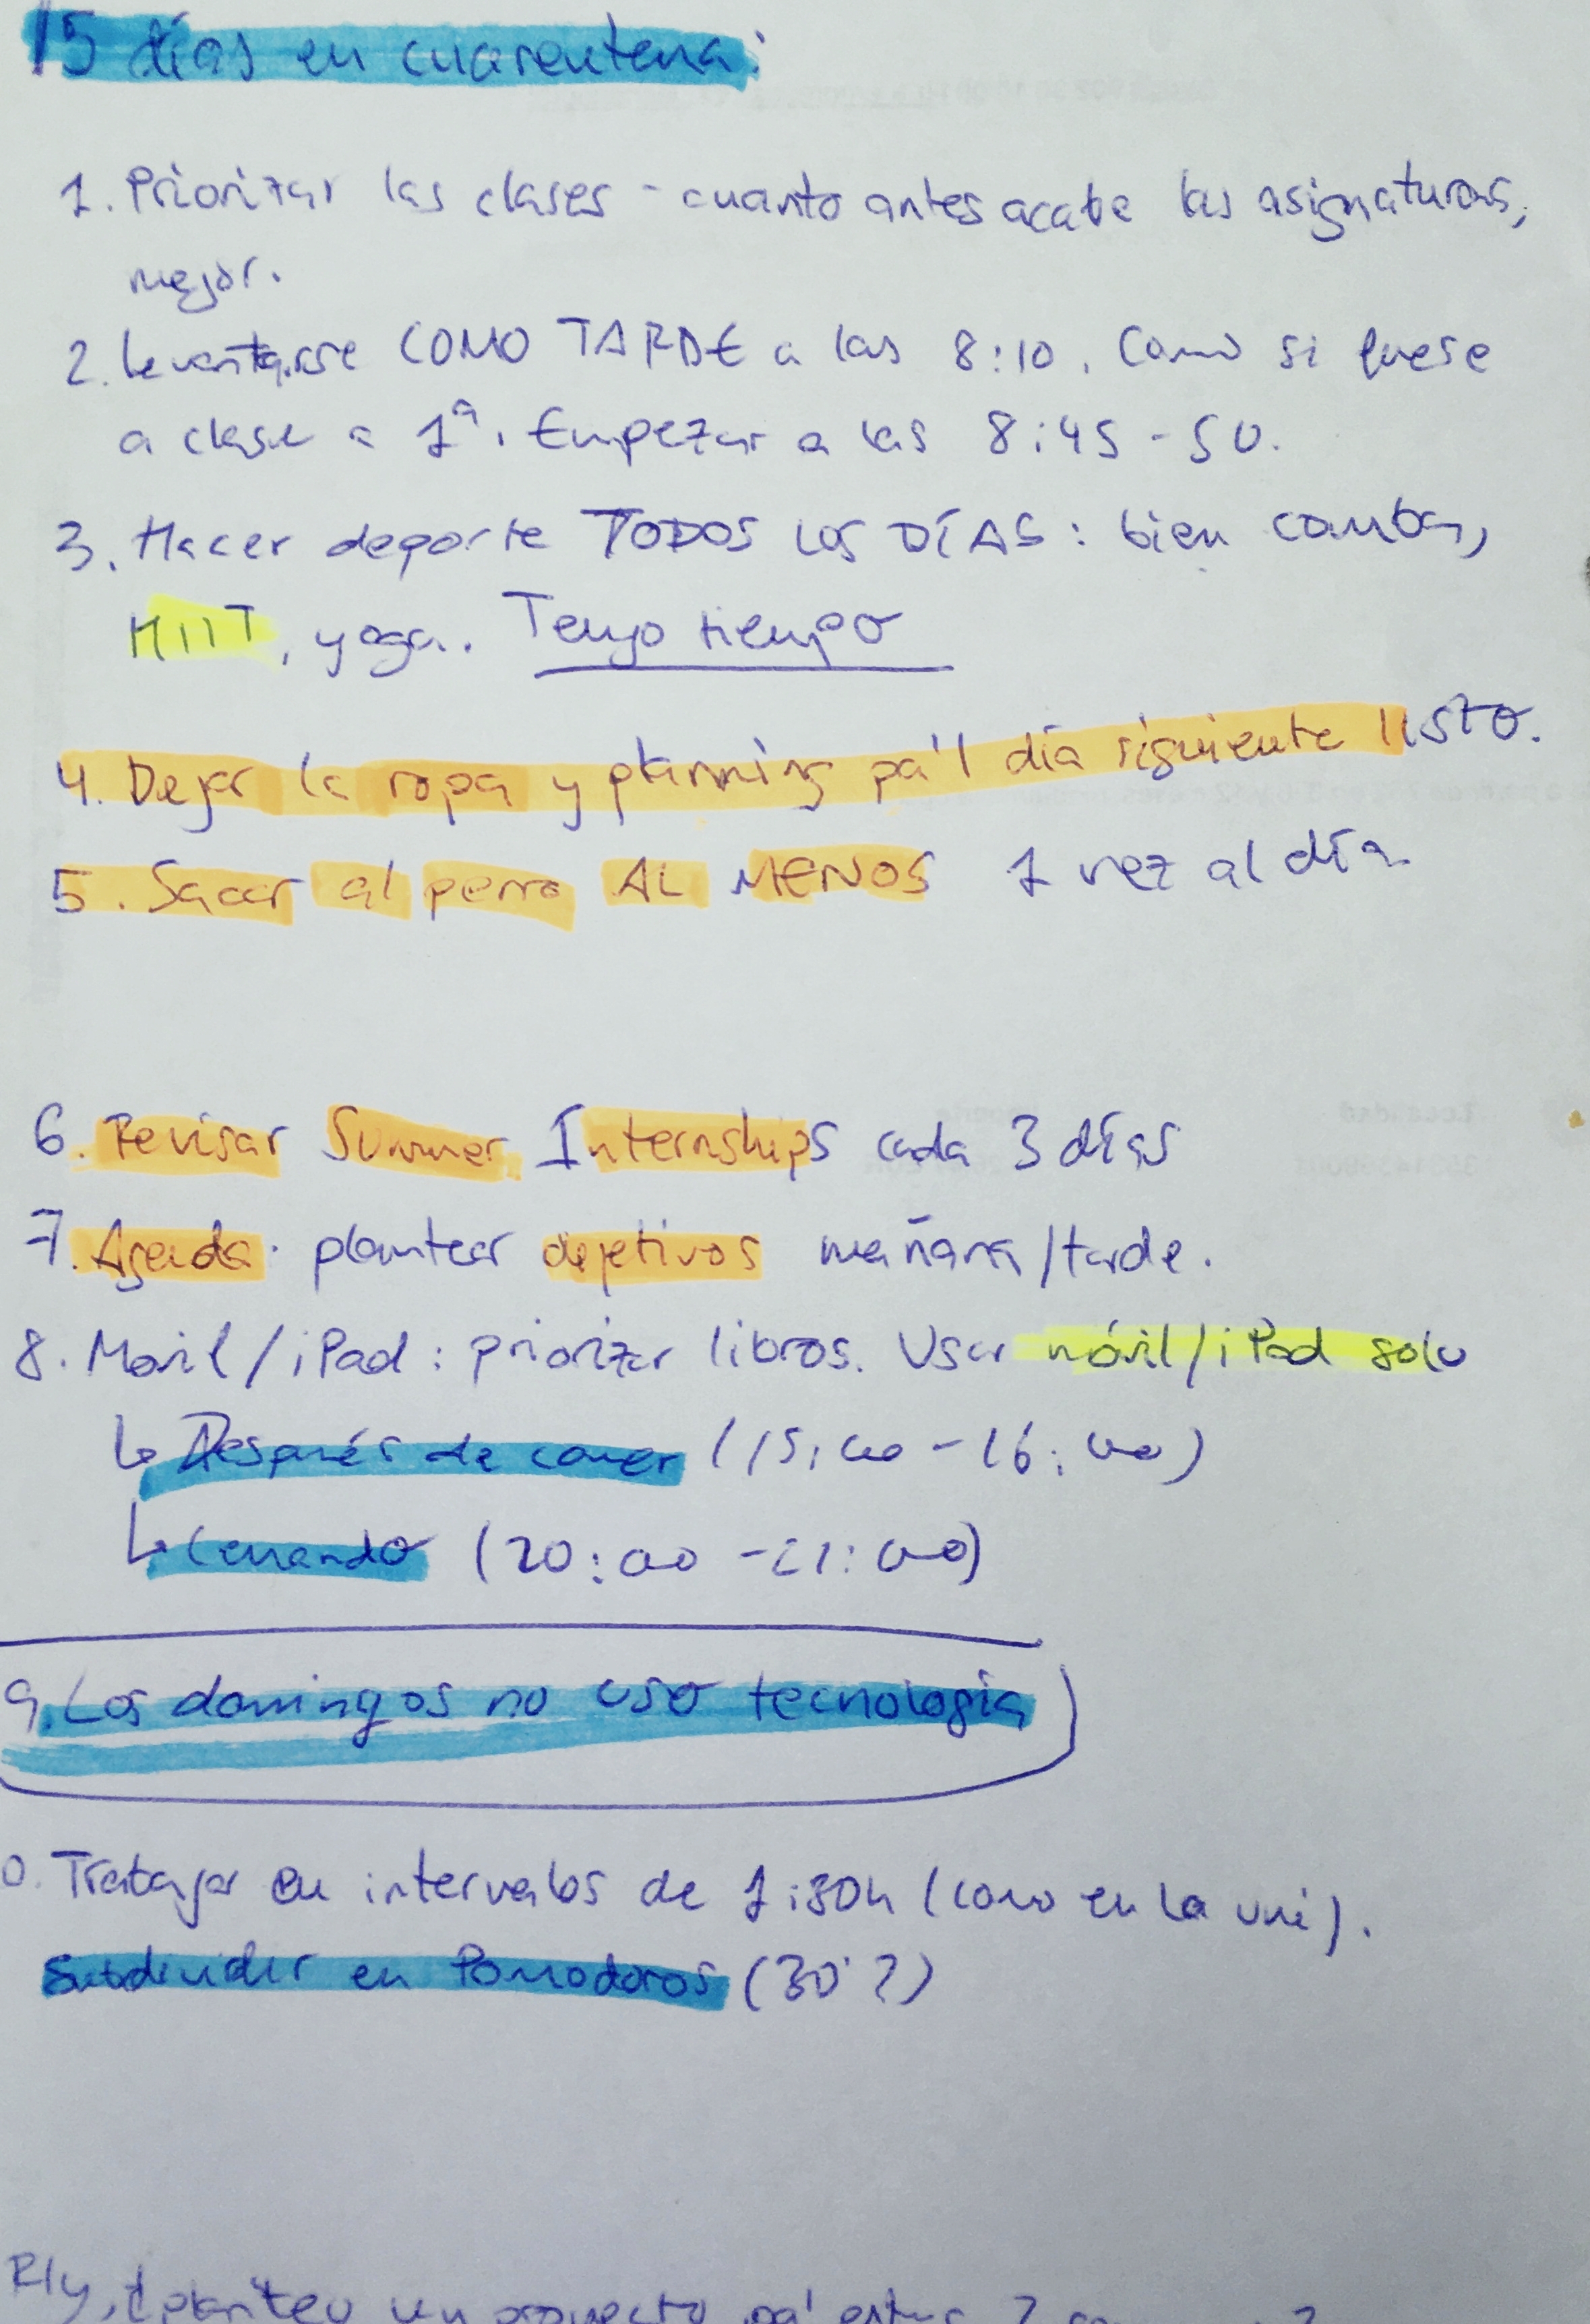 15 días en cuarentena:
1. Priorizar las clases - cuanto antes acabe las asignaturas,
mejor.
2. Levantarse COMO TARDE a las 8:10. Como si fuese
a clase a 1ª. Empezar a las 8:45-50.
3. Hacer deporte TODOS LOS DÍAS: bien comba,
HIIT, yoga. Tengo tiempo
4. Dejar la ropa y planning pa'l día siguiente listo.
5. Sacar al perro AL MENOS 1 vez al día.
6. Revisar Summer Internships cada 3 días
7. Agenda. plantear objetivos mañana/tarde.
8. Movil/iPad: priorizar libros. Usar móvil/iPad solo
↳ Después de comer (15:00-16:00)
↳ Cenando (20:00-21:00)
9. Los domingos no uso tecnología
0. Trabajar en intervalos de 1:30h (como en la uni).
Subdividir en Pomodoros (30'?)
Rly, planteo un proyecto pa'